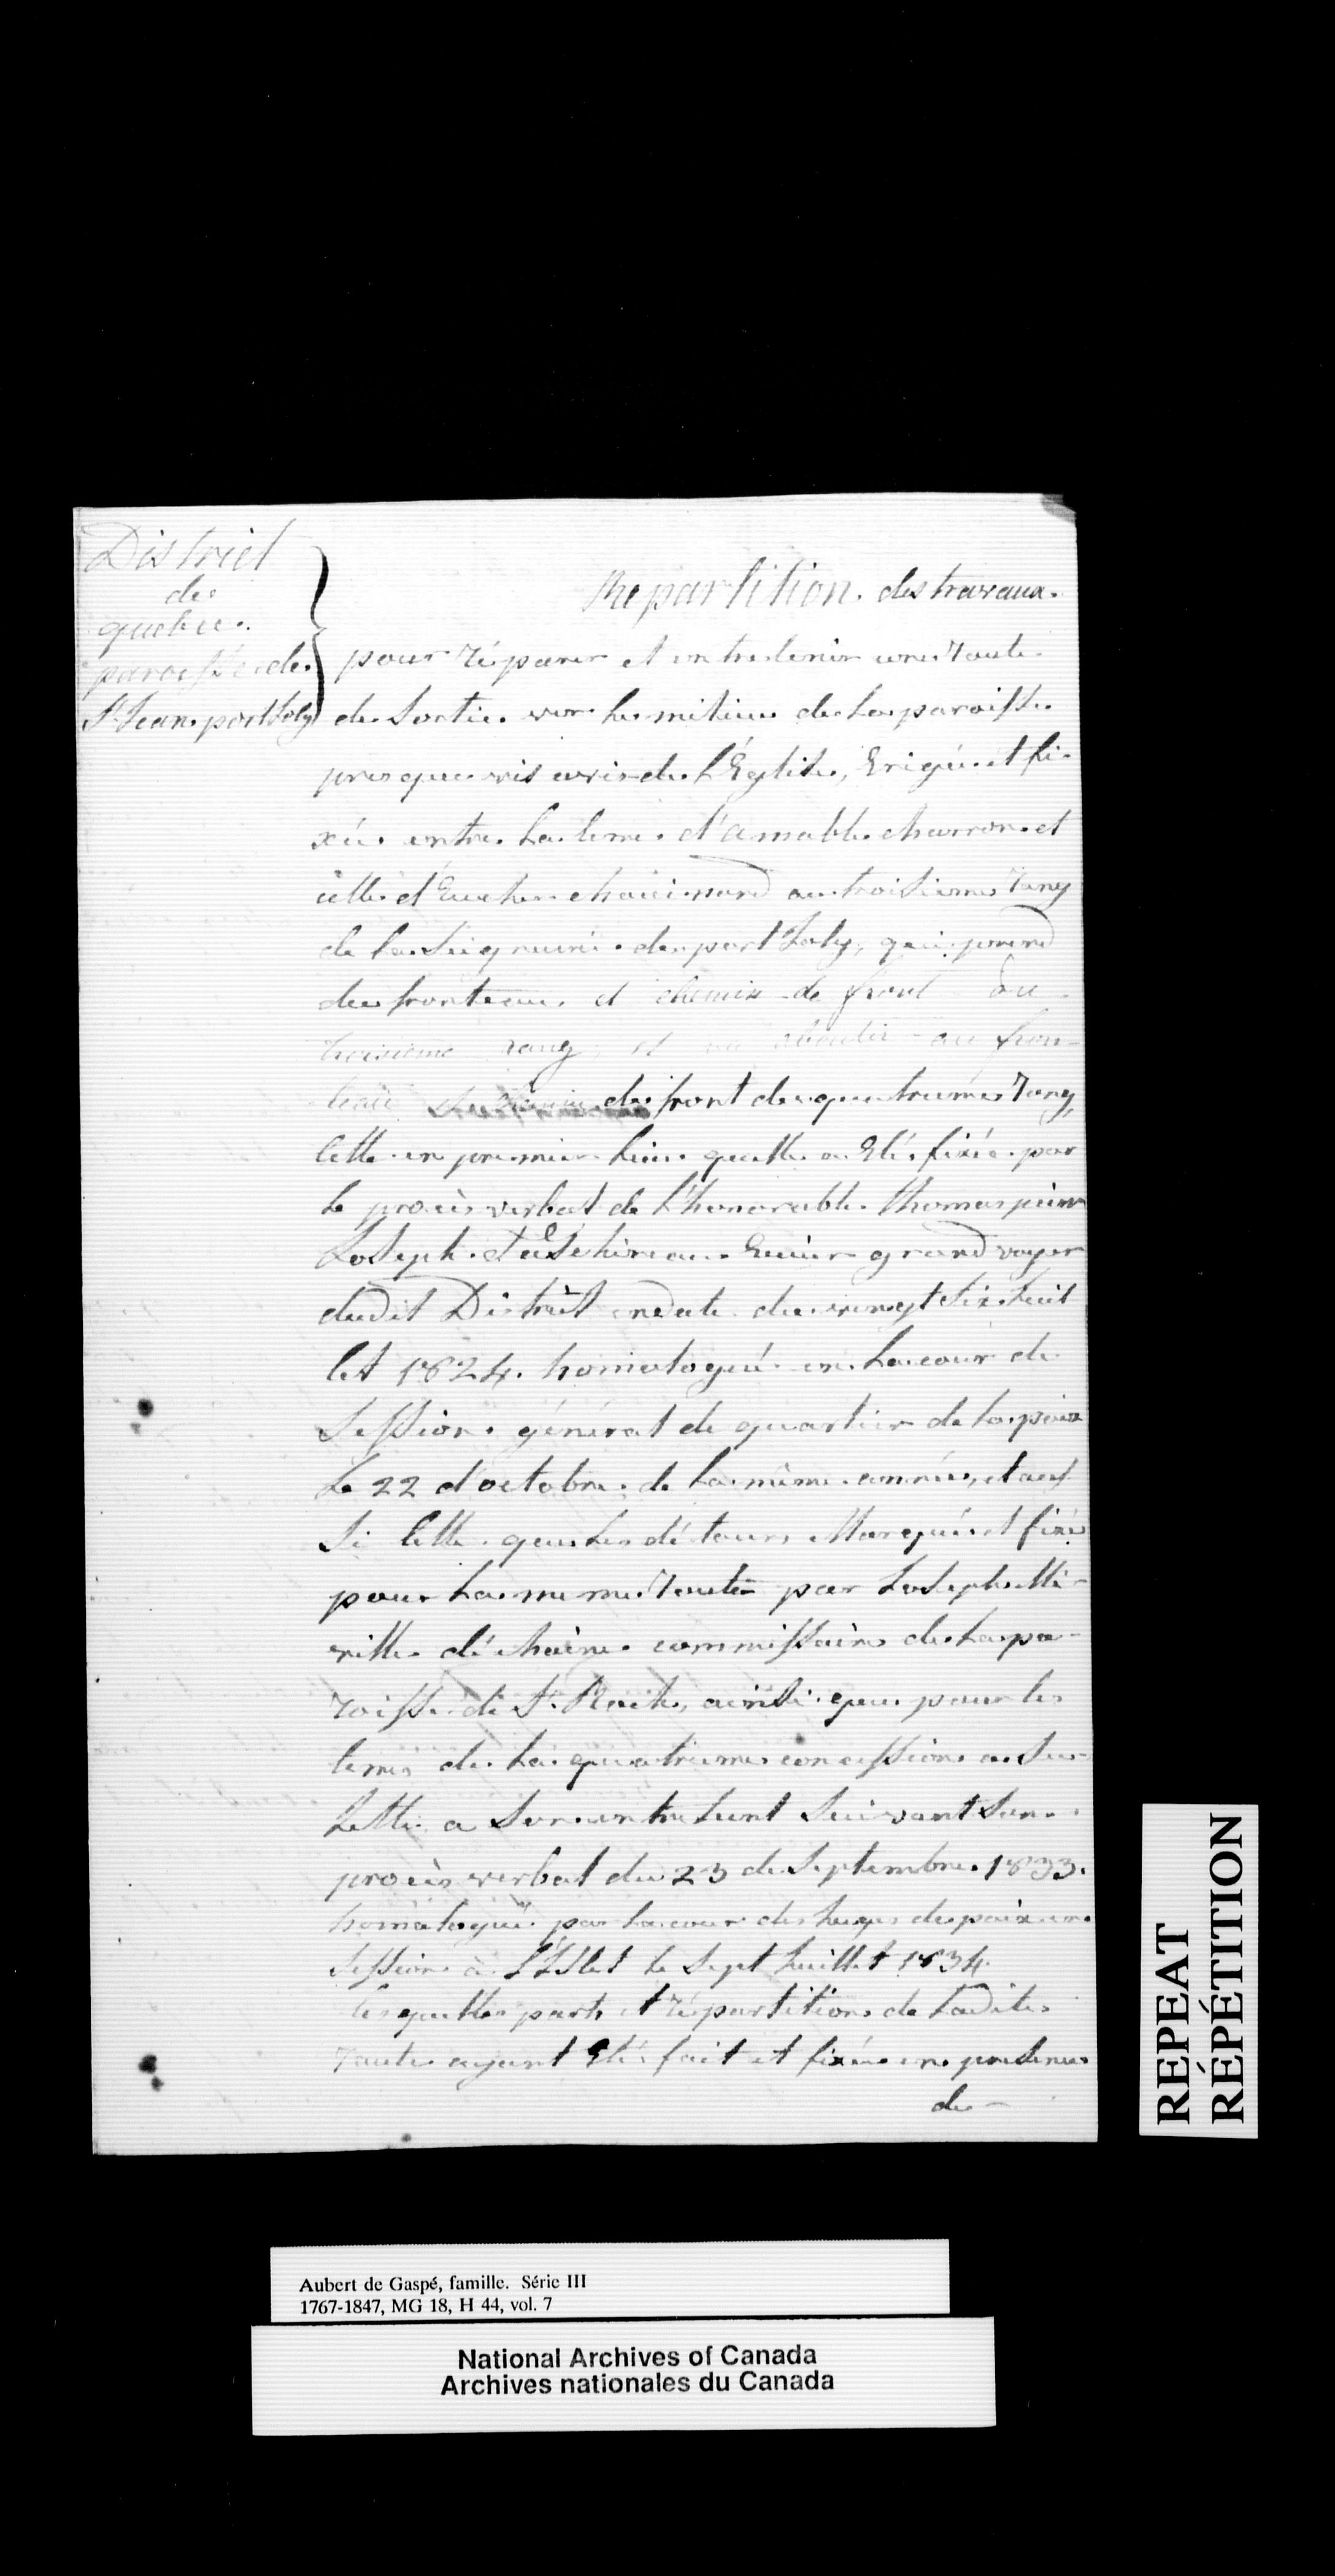 District
de
quebec.
paroisse de
St Jean port Joly
Repartition des travaux.
pour réparer et entretenir une route
de Sortie vers le milieu de la paroisse
presque vis avis de l'Eglise, Erigée et fi-
xée entre la terre d'amable charron et
celle d'Eucher chouinard au troisieme rang
de la Seigneurie du port Joly, qui prend
du fronteau et chemin de front du
troisième rang, et va aboutir au fron-
teau du chemin de front du quatrieme rang,
telle en premier lieu quelle a Eté fixée par
le procès verbal de l'honorable thomas pierre
Joseph Taschereau Ecuier grand voyer
dudit District en date du vingt Six Juil
let 1824. homologué en la cour de
Session général de quartier de la paix
Le 22 d'octobre de la même année, et aus-
Si telle que les détours Marqués et fixés
pour la meme route par Joseph Mi-
ville déchaine commissaire de la pa-
roisse de St. Roch, ainsi que pour les
terres de la quatrieme concession
a Son entretient Suivant Son
procès verbal du 23 de Septembre 1833.
homologué par la cour des Juges de paix en
Session à L'Islet le Sept Juillet 1834.
lesquelles parts et répartitions de Ladite
route ayant Eté fait et fixée en presence
de -
REPEAT
RÉPÉTITION
Aubert de Gaspé, famille. Série III
1767-1847, MG 18, H 44, vol. 7
National Archives of Canada
Archives nationales du Canada